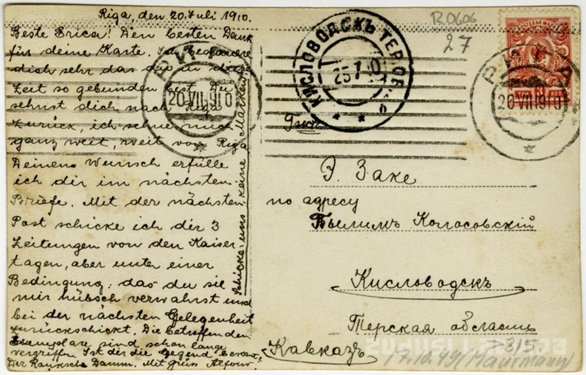 Riga, den 20. Juli 1910.
Beste Erica! Den besten Dank
für deine Karte. Ich bedauere
dich sehr das du die
Zeit so gebunden bist. Du
sehnst dich nach
zurück, ich sehne mich
ganz weit, weit von Riga.
Deinen Wunsch erfülle
ich dir im nächsten
Briefe. Mit der nächsten
Post schicke ich dir 3
Zeitungen von den Kaiser-
tagen, aber unter einer
Bedingung: das du sie
mir hübsch verwahrst und
bei der nächsten Gelegenheit
zurückschickst. Die betreffenden
Exemplare sind schon lange
vergriffen. Ist dir die Gegend
Mit Alfons
Schicke uns keine Marken
R0606
27
КИСЛОВОДСКЪ ТЕР. ОБ.
25 7 10
РИГА
20 VII 1910
РИГА
20 VII 1910
Э. Заке
по адресу
Былимъ Колосовскій
Кисловодскъ
Терская область
Кавказъ